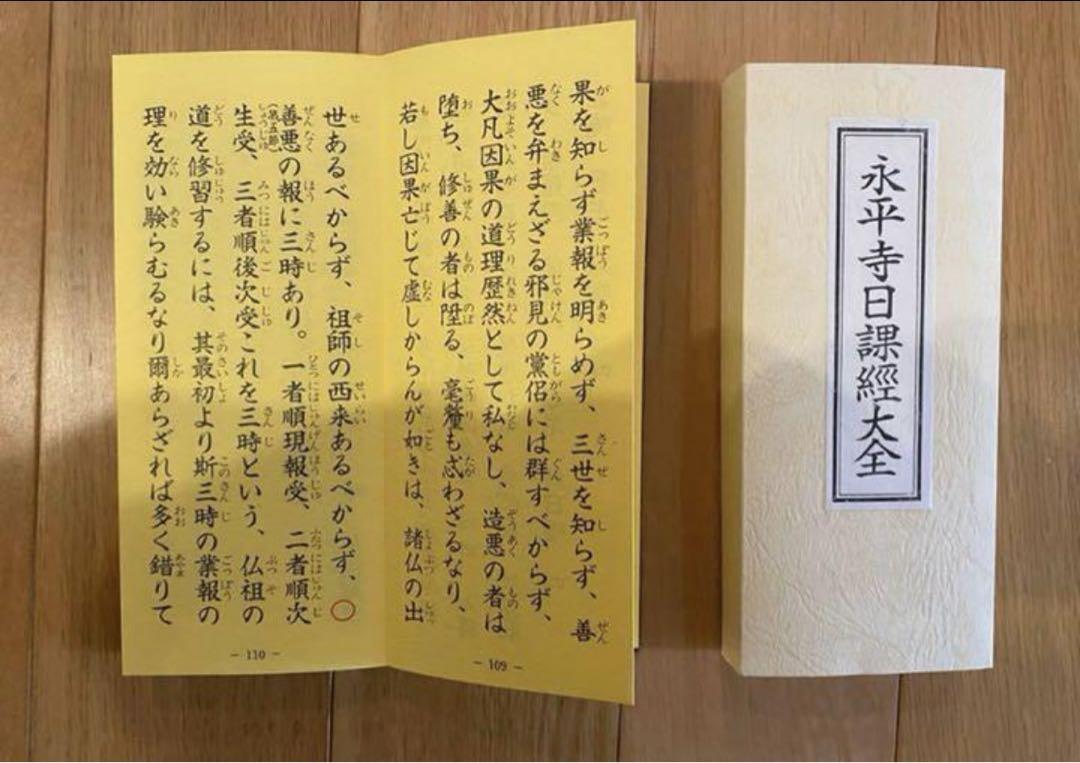 永平寺日課經大全
果を知らず業報を明らめず、三世を知らず、善
悪を弁まえざる邪見の黨侶には群すべからず、
大凡因果の道理歴然として私なし、造悪の者は
堕ち、修善の者は陞る、毫釐も忒わざるなり、
若し因果亡じて虚しからんが如きは、諸仏の出
－109－
世あるべからず、祖師の西来あるべからず、〇
(第五節)
善悪の報に三時あり。一者順現報受、二者順次
生受、三者順後次受これを三時という、仏祖の
道を修習するには、其最初より斯三時の業報の
理を効い験らむるなり爾あらざれば多く錯りて
－110－